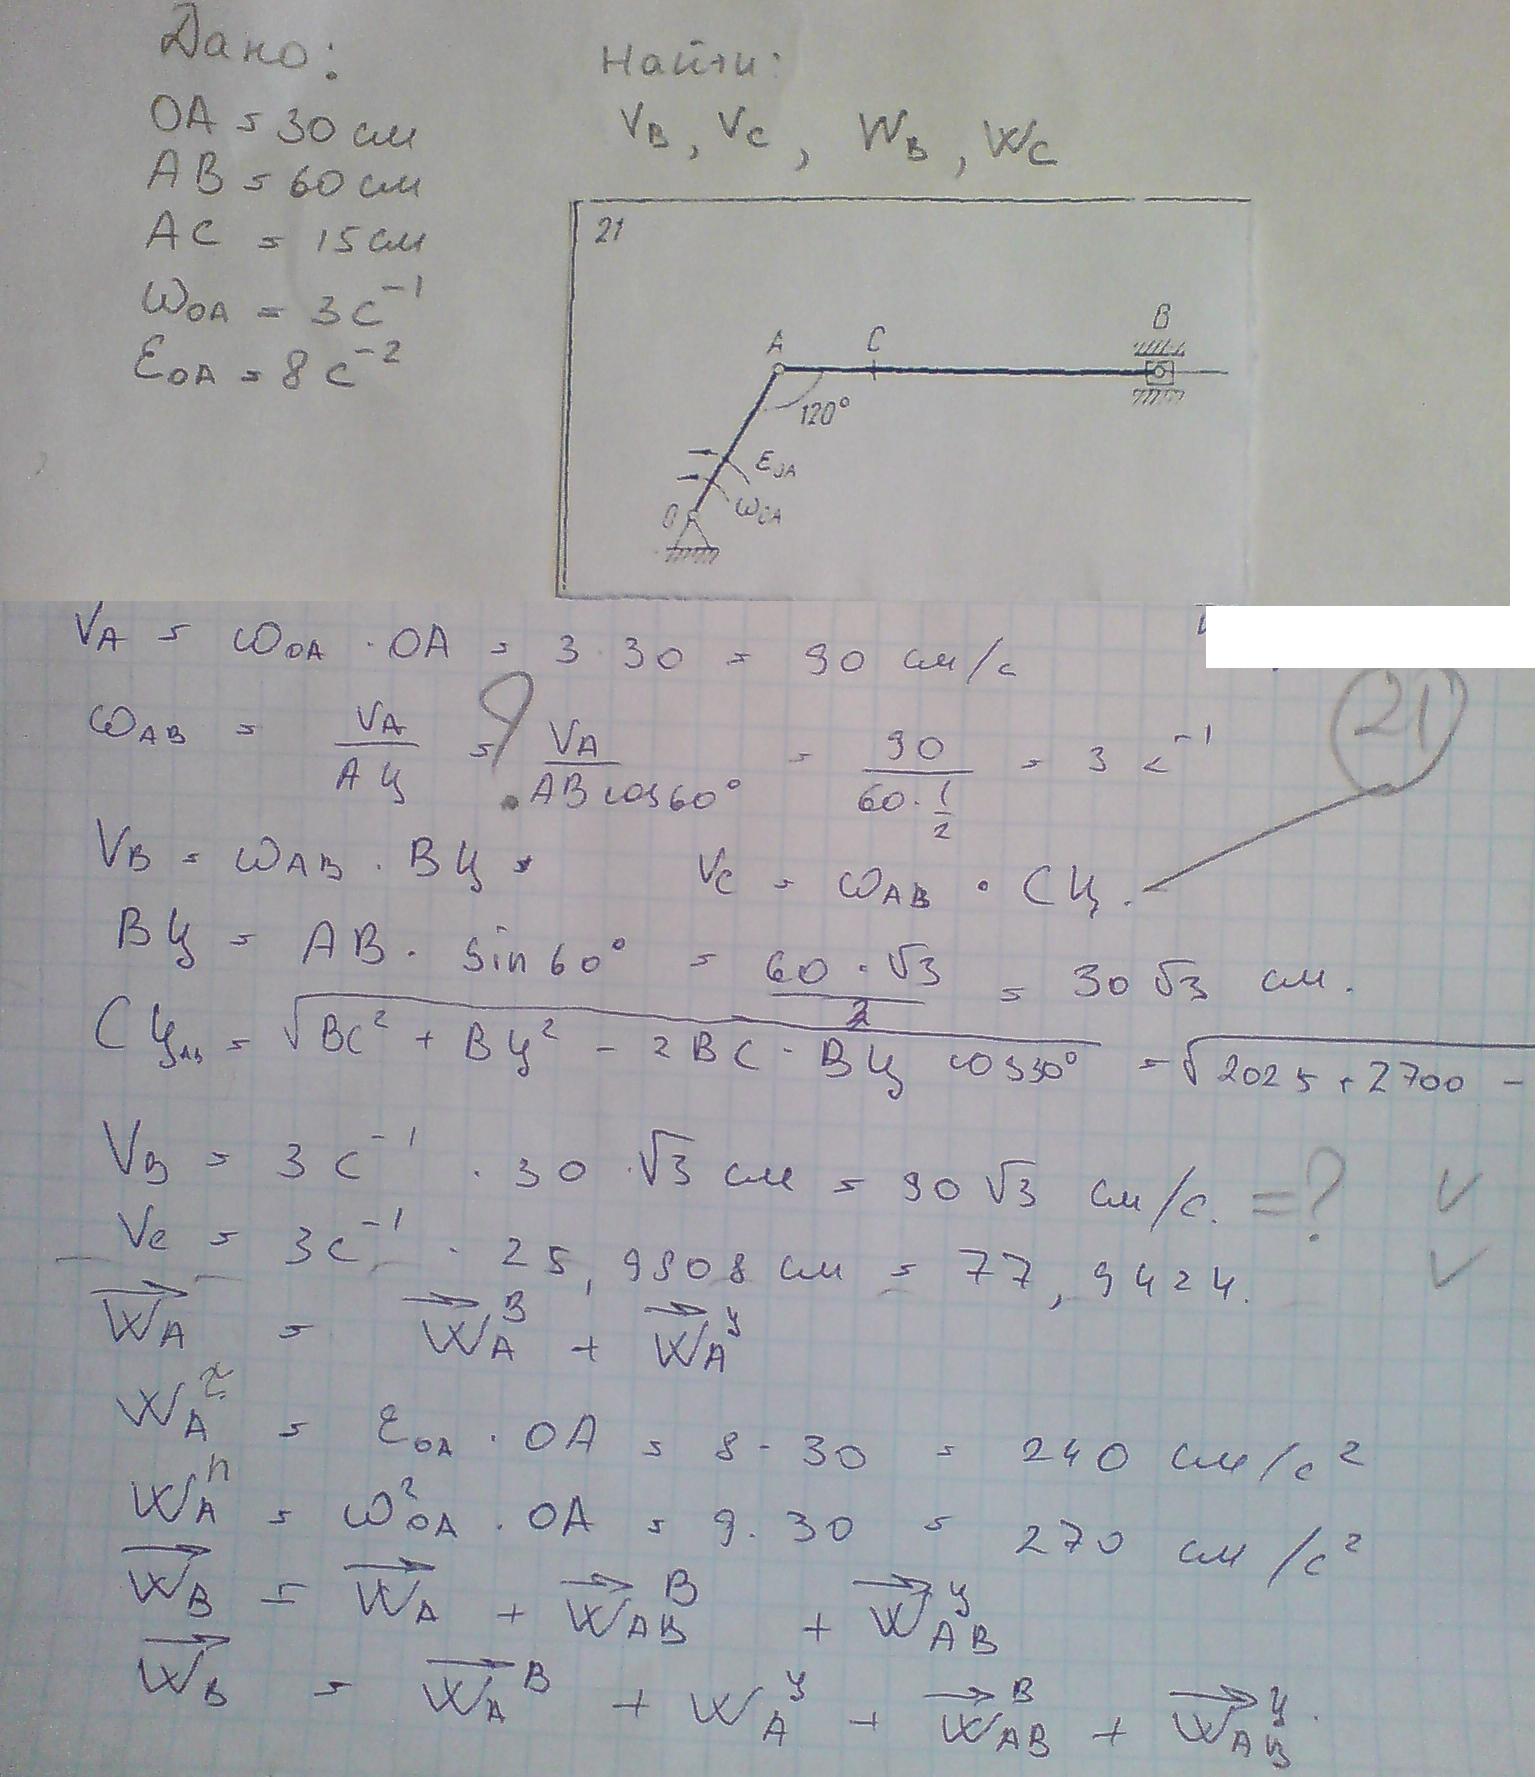 Дано:
Найти:
OA = 30 см
AB = 60 см
AC = 15 см
ωOA = 3 с⁻¹
εOA = 8 с⁻²
VB, VC, WB, WC
21
A C B
120°
εOA
ωOA
O
VA = ωOA · OA = 3 · 30 = 90 см/с
21
ωAB = VA/АЦ = ? VA/(AB cos60°) = 90/(60 · 1/2) = 3 с⁻¹
VB = ωAB · BЦ VC = ωAB · CЦ.
BЦ = AB · sin 60° = 60 · √3/2 = 30 √3 см.
CЦAB = √(BC² + BЦ² - 2BC · BЦ cos30°) = √(2025 + 2700 -
VB = 3 с⁻¹ · 30 · √3 см = 90 √3 см/с. = ? ✓
VC = 3 с⁻¹ · 25,9808 см = 77,9424. ✓
W⃗A = W⃗Aᴮ + W⃗Aʸ
WA^τ = εOA · OA = 8 · 30 = 240 см/с²
WAⁿ = ω²OA · OA = 9 · 30 = 270 см/с²
W⃗B = W⃗A + W⃗ABᴮ + W⃗ABʸ
W⃗B = W⃗Aᴮ + WAʸ + W⃗ABᴮ + W⃗AB^ц.